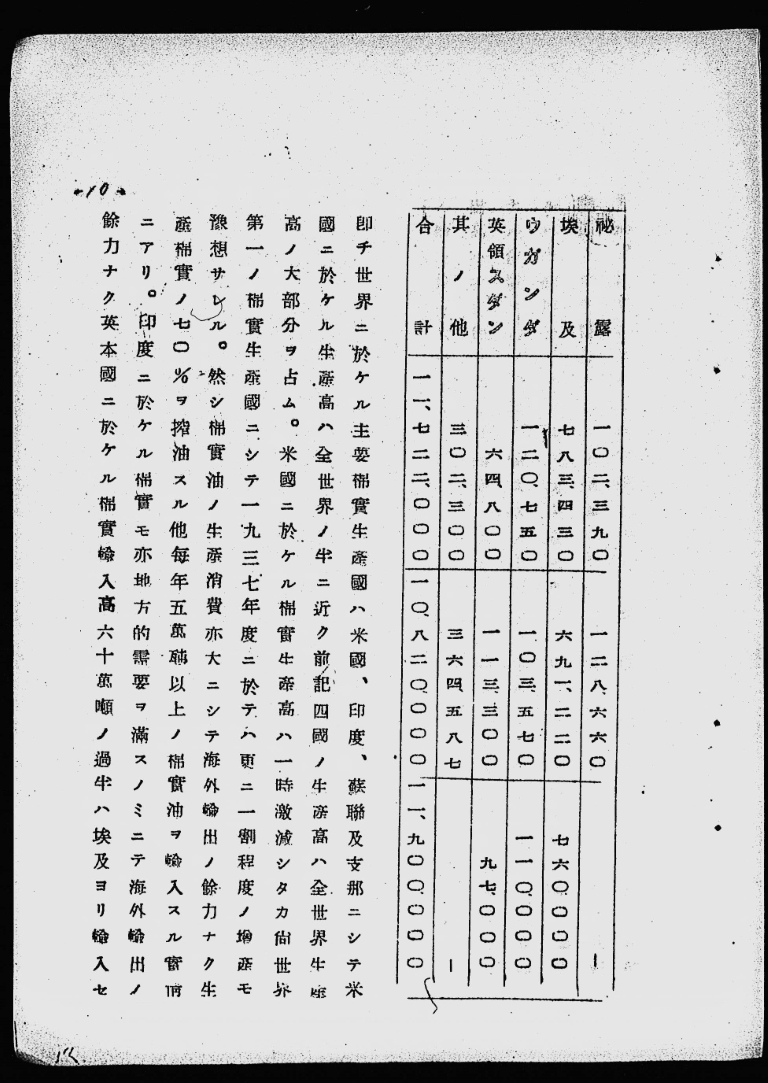 祕露 一〇二、三九〇 一二八、六六〇 ー
埃及 七八三、四三〇 六九一、二二〇 七六〇、〇〇〇
ウガンダ 一二〇、七五〇 一〇三、五七〇 一一〇、〇〇〇
英領スダン 六四、八〇〇 一一三、三〇〇 九七、〇〇〇
其ノ他 三〇二、三〇〇 三六四、五八七 ー
合計 一一、七二二、〇〇〇 一〇、八二〇、〇〇〇 一一、九〇〇、〇〇〇
卽チ世界ニ於ケル主要棉實生產國ハ米國、印度、蘇聯及支那ニシテ米
國ニ於ケル生產高ハ全世界ノ半ニ近ク前記四國ノ生產高ハ全世界生產
高ノ大部分ヲ占ム。米國ニ於ケル棉實生產高ハ一時激減シタカ尙世界
第一ノ棉實生產國ニシテ一九三七年度ニ於テハ更ニ一割程度ノ增產モ
豫想サレル。然シ棉實油ノ生產消費亦大ニシテ海外輸出ノ餘力ナク生
產棉實ノ七〇%ヲ搾油スル他每年五萬噸以上ノ棉實油ヲ輸入スル實情
ニアリ。印度ニ於ケル棉實モ亦地方的需要ヲ滿スノミニテ海外輸出ノ
餘力ナク英本國ニ於ケル棉實輸入高六十萬噸ノ過半ハ埃及ヨリ輸入セ
-10-